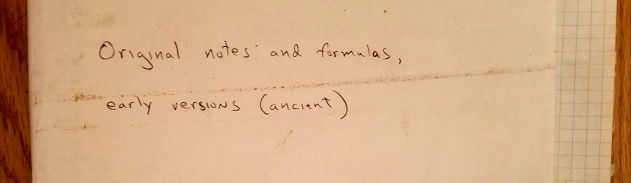 Original notes and formulas,
early versions (ancient)